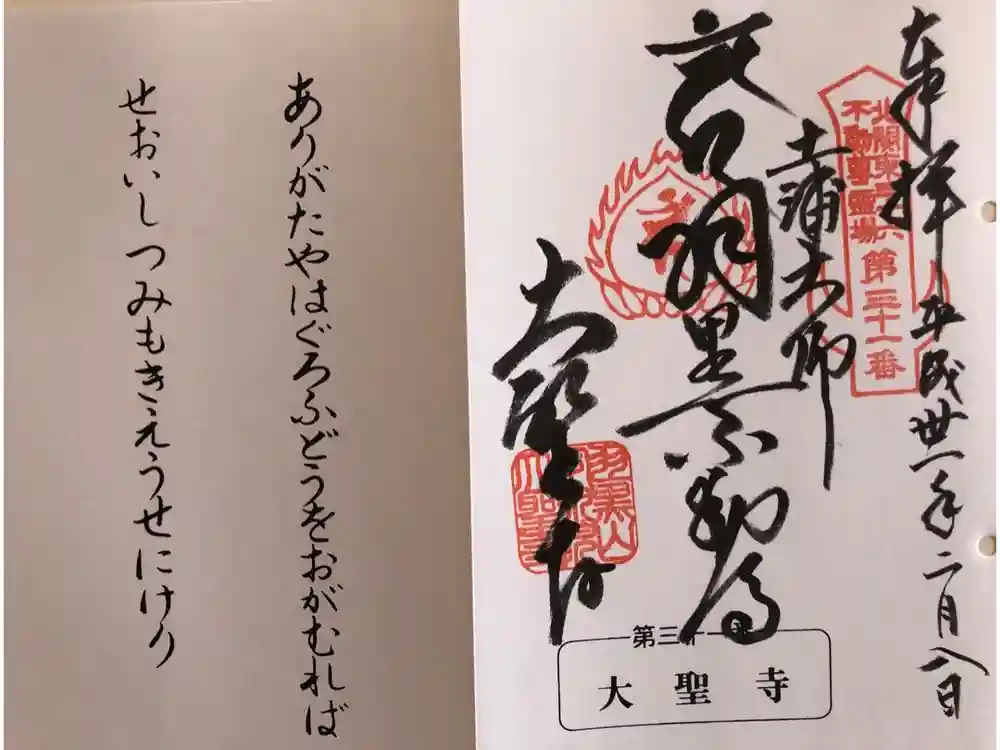 奉拝
平成卅一年二月八日
北関東三十六
不動尊霊場
第三十一番
土浦大師
羽黒不動尊
大聖寺
羽黒山
第三十一番
大聖寺
ありがたやはぐろふどうをおがむれば
せおいしつみもきえうせにけり